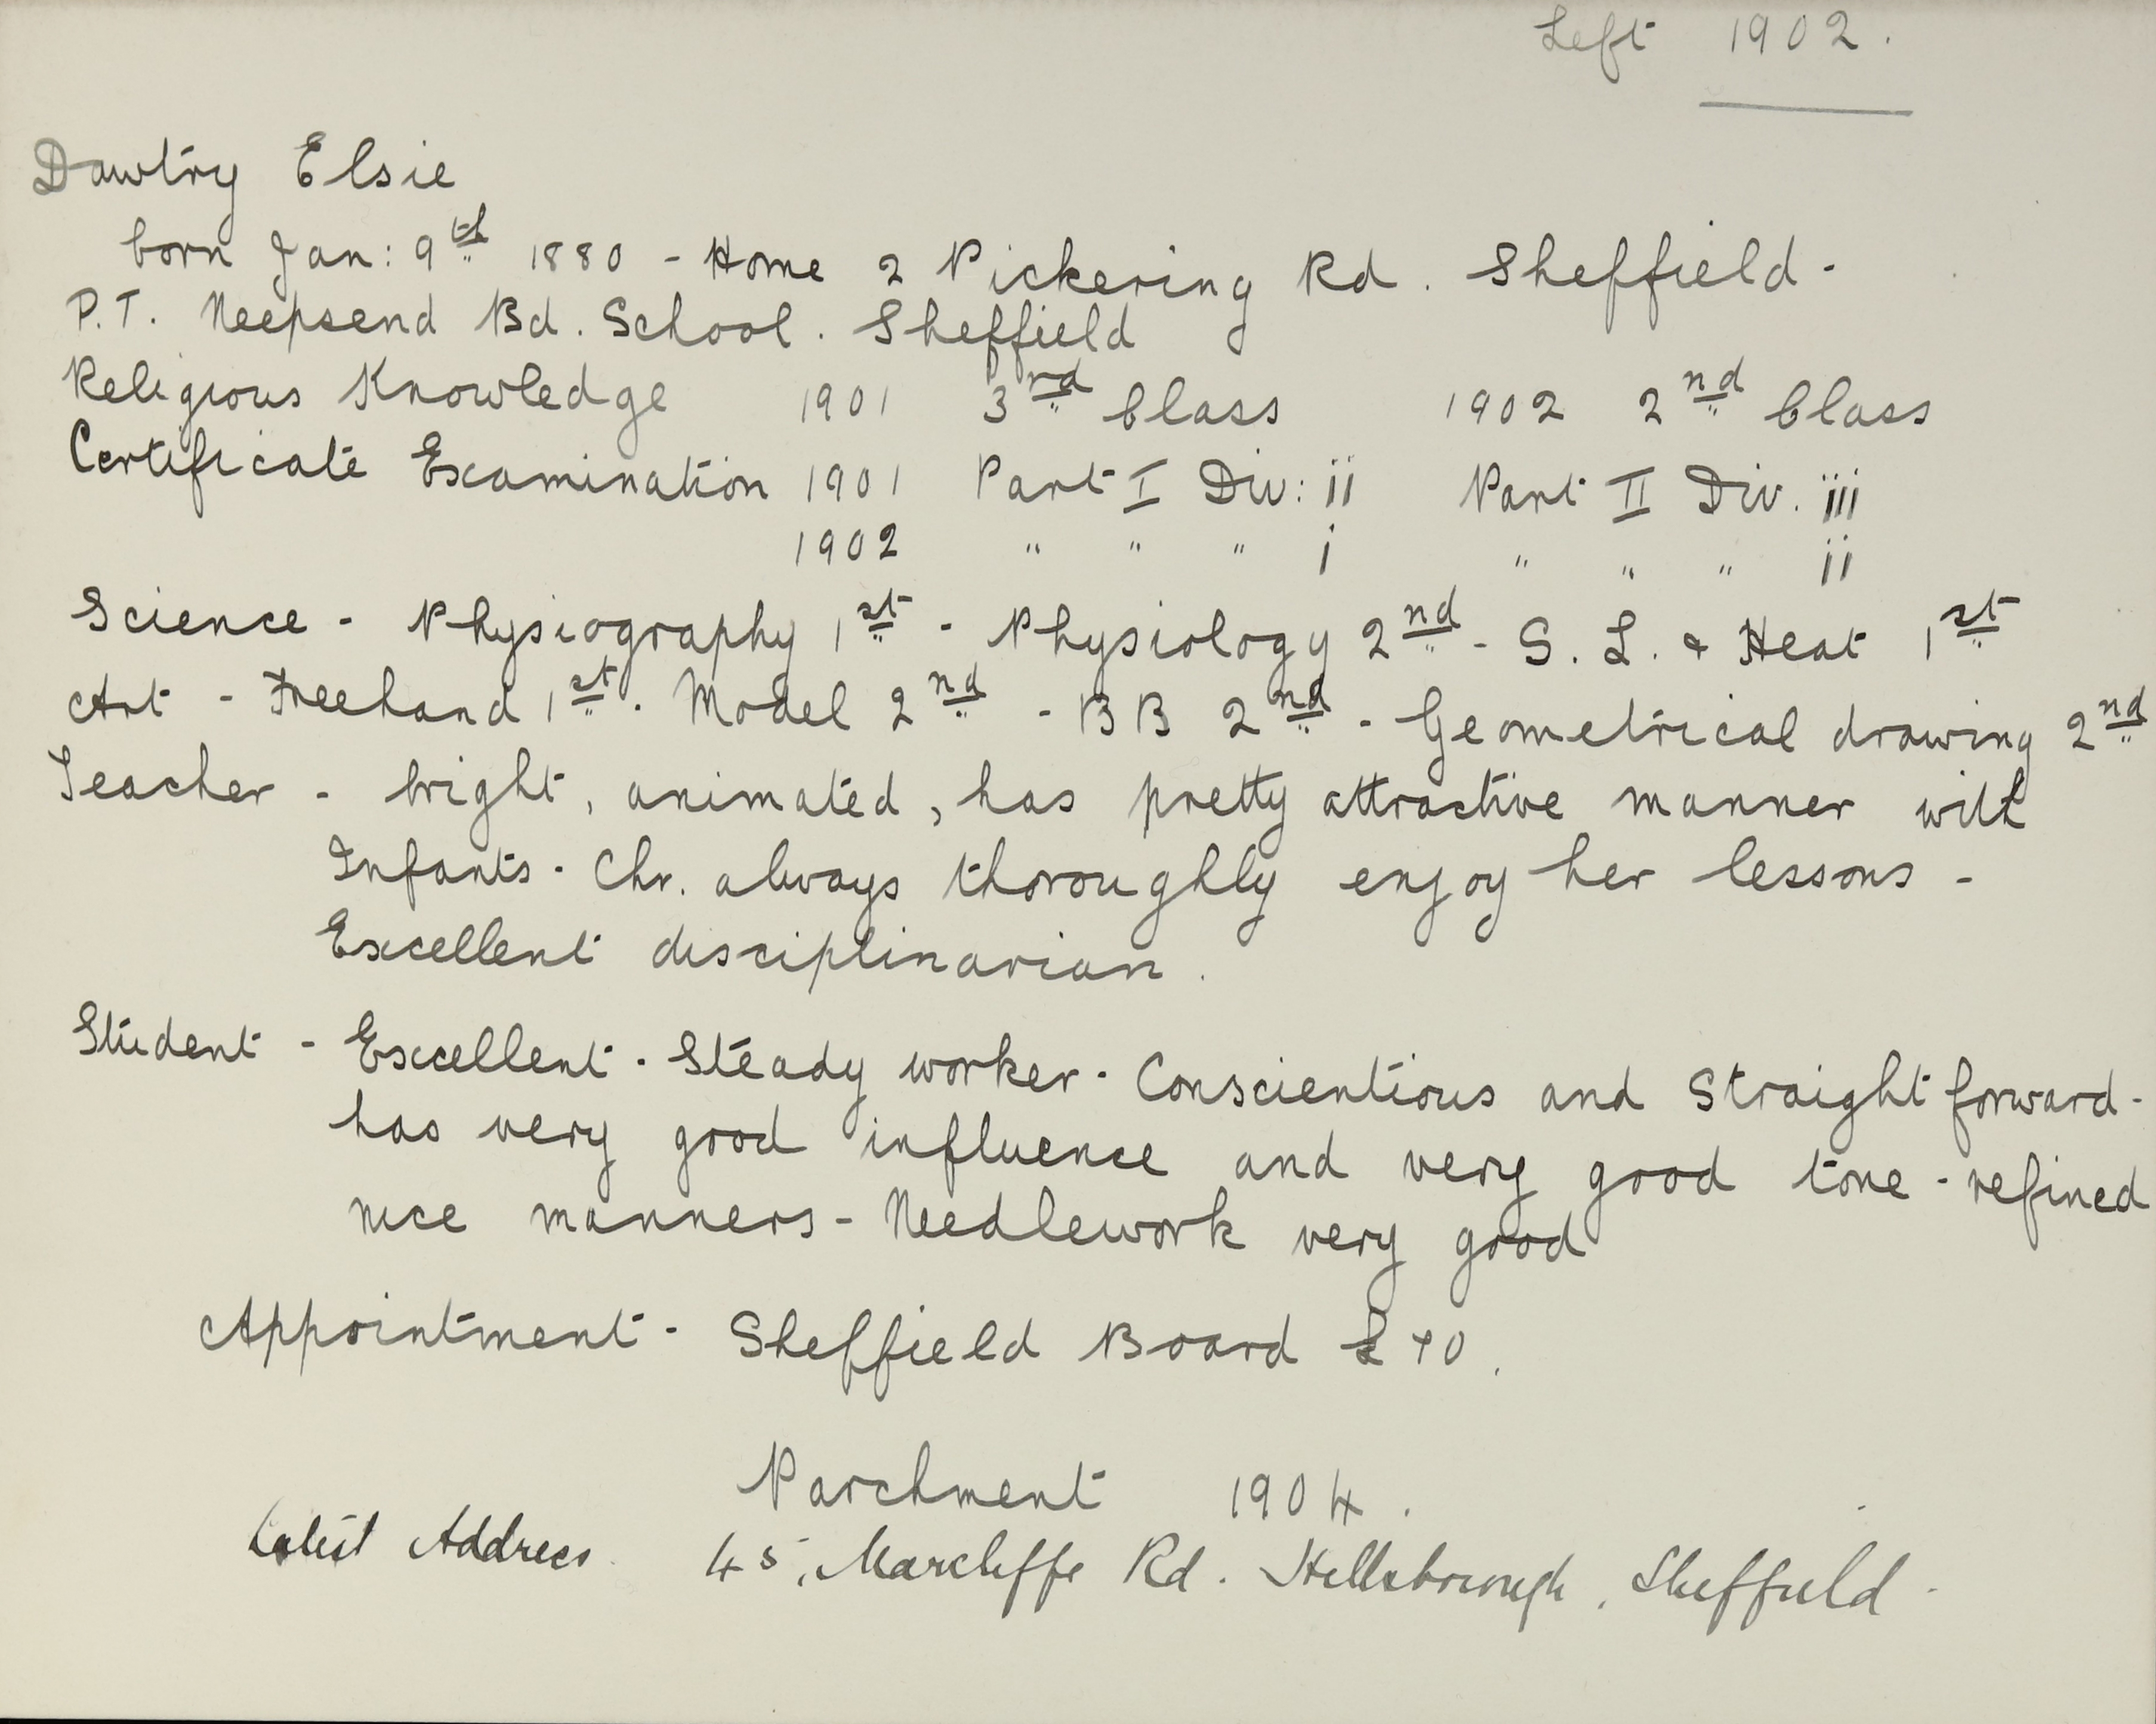 Left 1902.
Dawtry Elsie
born Jan: 9th 1880 - Home 2 Pickering Rd. Sheffield -
P.T. Neepsend Bd. School. Sheffield
Religious Knowledge 1901 3rd Class 1902 2nd Class
Certificate Examination 1901 Part I Div: ii Part II Div. iii
1902 " " " i " " " ii
Science - Physiography 1st - Physiology 2nd - S. L. & Heat 1st
Art - Freehand 1st. Model 2nd - BB 2nd - Geometrical drawing 2nd
Teacher - bright, animated, has pretty attractive manner with
Infants - Chr. always thoroughly enjoy her lessons -
Excellent disciplinarian.
Student - Excellent - Steady worker - Conscientious and Straightforward -
has very good influence and very good tone - refined
nice manners - Needlework very good
Appointment - Sheffield Board £70.
Parchment 1904.
Latest Address 45, Marcliffe Rd. Hillsborough, Sheffield -